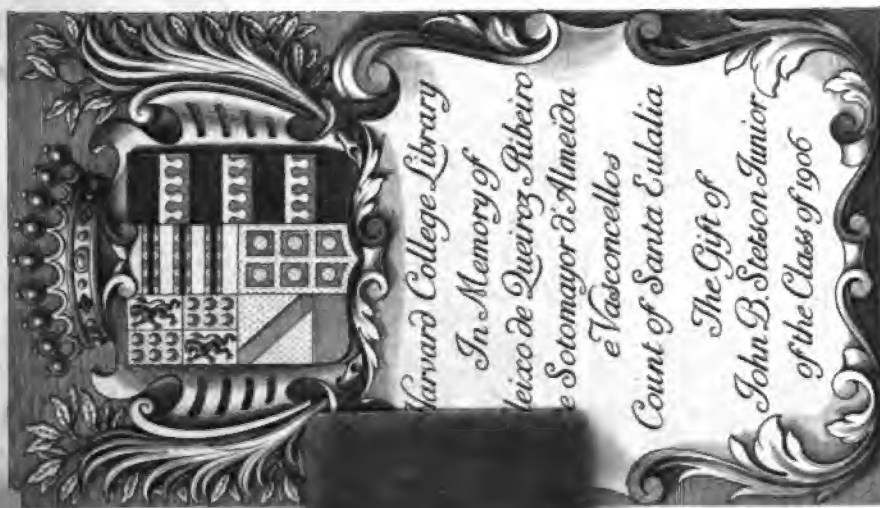 Harvard College Library
In Memory of
leixo de Queiroz Ribeiro
e Sotomayor d'Almeida
e Vasconcellos
Count of Santa Eulalia
The Gift of
John B. Stetson Junior
of the Class of 1906